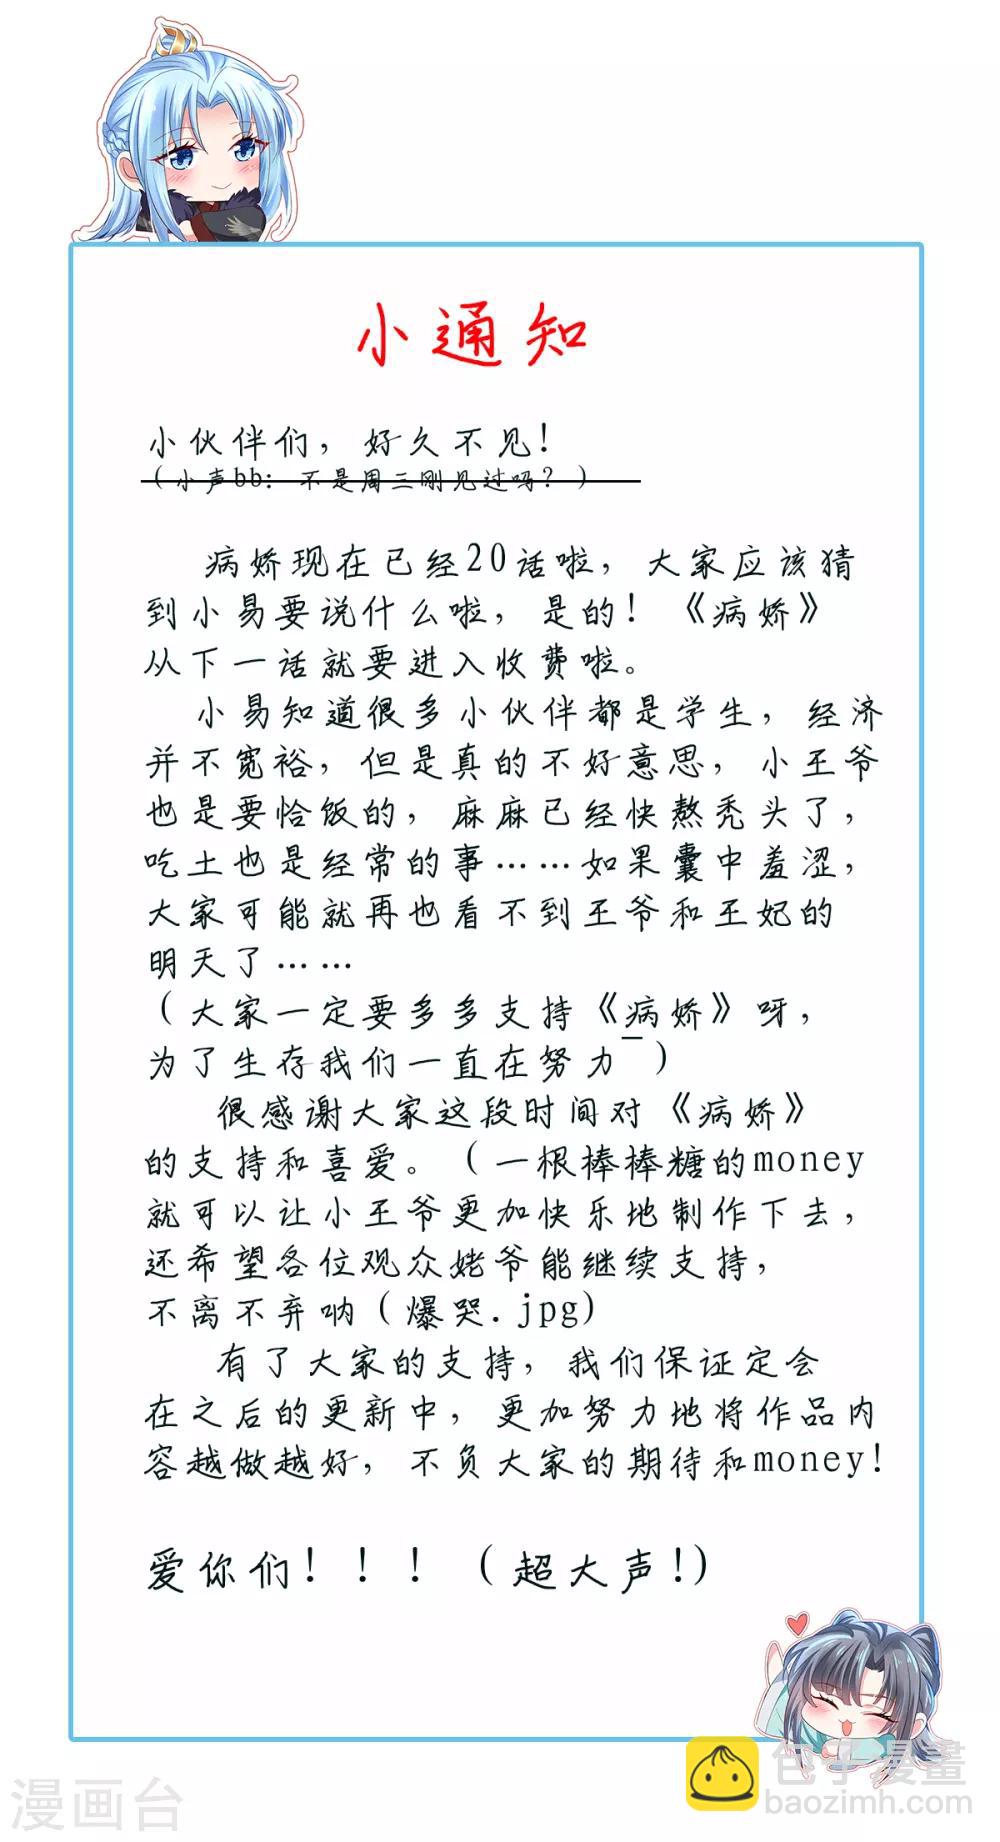 小通知
小伙伴们，好久不见！
（小声bb：不是周三刚见过吗？）
病娇现在已经20话啦，大家应该猜
到小易要说什么啦，是的！《病娇》
从下一话就要进入收费啦。
小易知道很多小伙伴都是学生，经济
并不宽裕，但是真的不好意思，小王爷
也是要恰饭的，麻麻已经快熬秃头了，
吃土也是经常的事……如果囊中羞涩，
大家可能就再也看不到王爷和王妃的
明天了……
（大家一定要多多支持《病娇》呀，
为了生存我们一直在努力¯）
很感谢大家这段时间对《病娇》
的支持和喜爱。（一根棒棒糖的money
就可以让小王爷更加快乐地制作下去，
还希望各位观众姥爷能继续支持，
不离不弃呐（爆哭.jpg)
有了大家的支持，我们保证定会
在之后的更新中，更加努力地将作品内
容越做越好，不负大家的期待和money!
爱你们！！！（超大声!)
包子漫畫
baozimh.com
漫画台